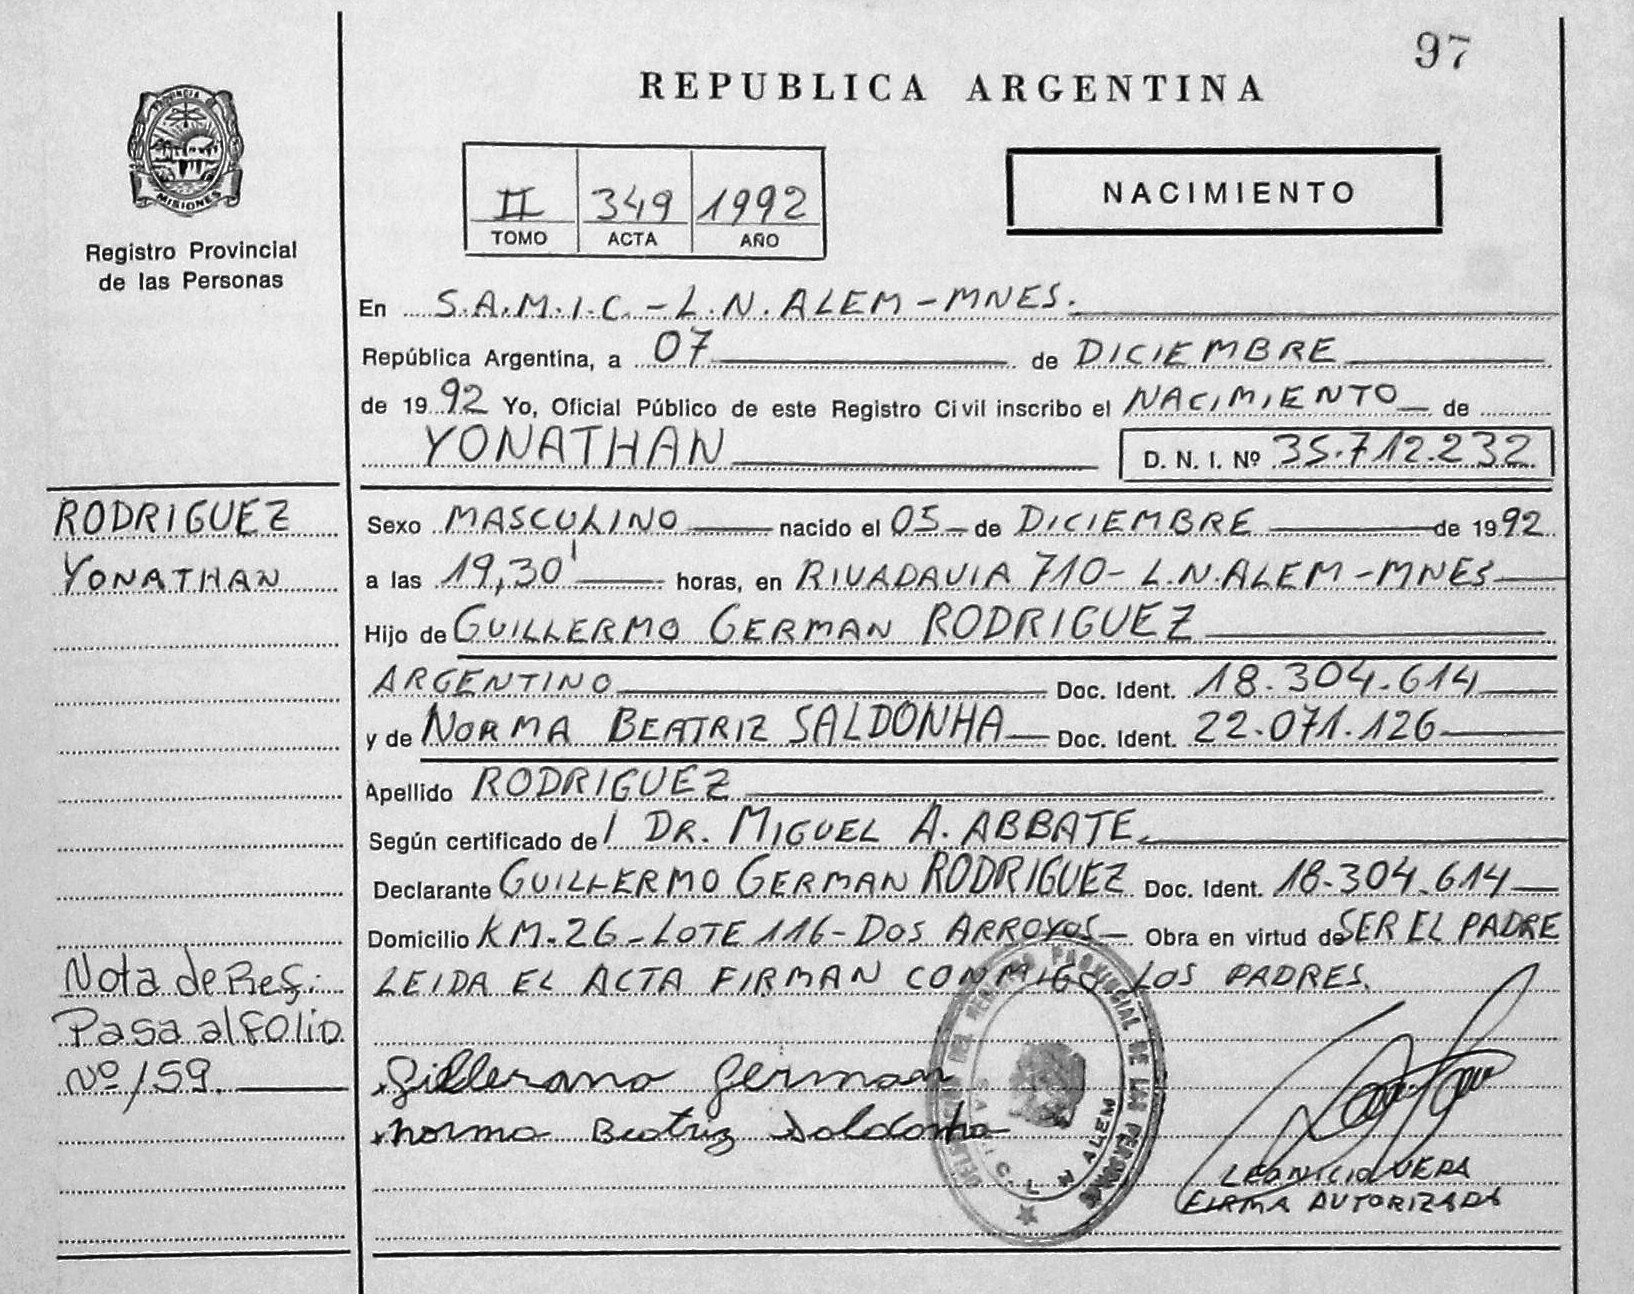 97
REPUBLICA ARGENTINA
PROVINCIA DE
MISIONES
Registro Provincial
de las Personas
II 349 1992
TOMO ACTA AÑO
NACIMIENTO
En S.A.M.I.C. - L.N. ALEM - MNES.
República Argentina, a 07 de DICIEMBRE
de 1992 Yo, Oficial Público de este Registro Civil inscribo el NACIMIENTO de
YONATHAN D. N. I. Nº 35.712.232
RODRIGUEZ
YONATHAN
Sexo MASCULINO nacido el 05 de DICIEMBRE de 1992
a las 19,30' horas, en RIVADAVIA 710 - L.N. ALEM - MNES
Hijo de GUILLERMO GERMAN RODRIGUEZ
ARGENTINO Doc. Ident. 18.304.614
y de NORMA BEATRIZ SALDONHA Doc. Ident. 22.071.126
Apellido RODRIGUEZ
Según certificado de l DR. MIGUEL A. ABBATE.
Declarante GUILLERMO GERMAN RODRIGUEZ Doc. Ident. 18.304.614
Domicilio KM. 26 - LOTE 116 - DOS ARROYOS - Obra en virtud de SER EL PADRE
LEIDA EL ACTA FIRMAN CONMIGO LOS PADRES.
Nota de Ref:
Pasa al Folio
Nº 159.
Gillerano German
Norma Beatriz Saldonha
DELEGACION DEL REGISTRO PROVINCIAL DE LAS PERSONAS
S.A.M.I.C. L N ALEM
LEONICIO VERA
FIRMA AUTORIZADA